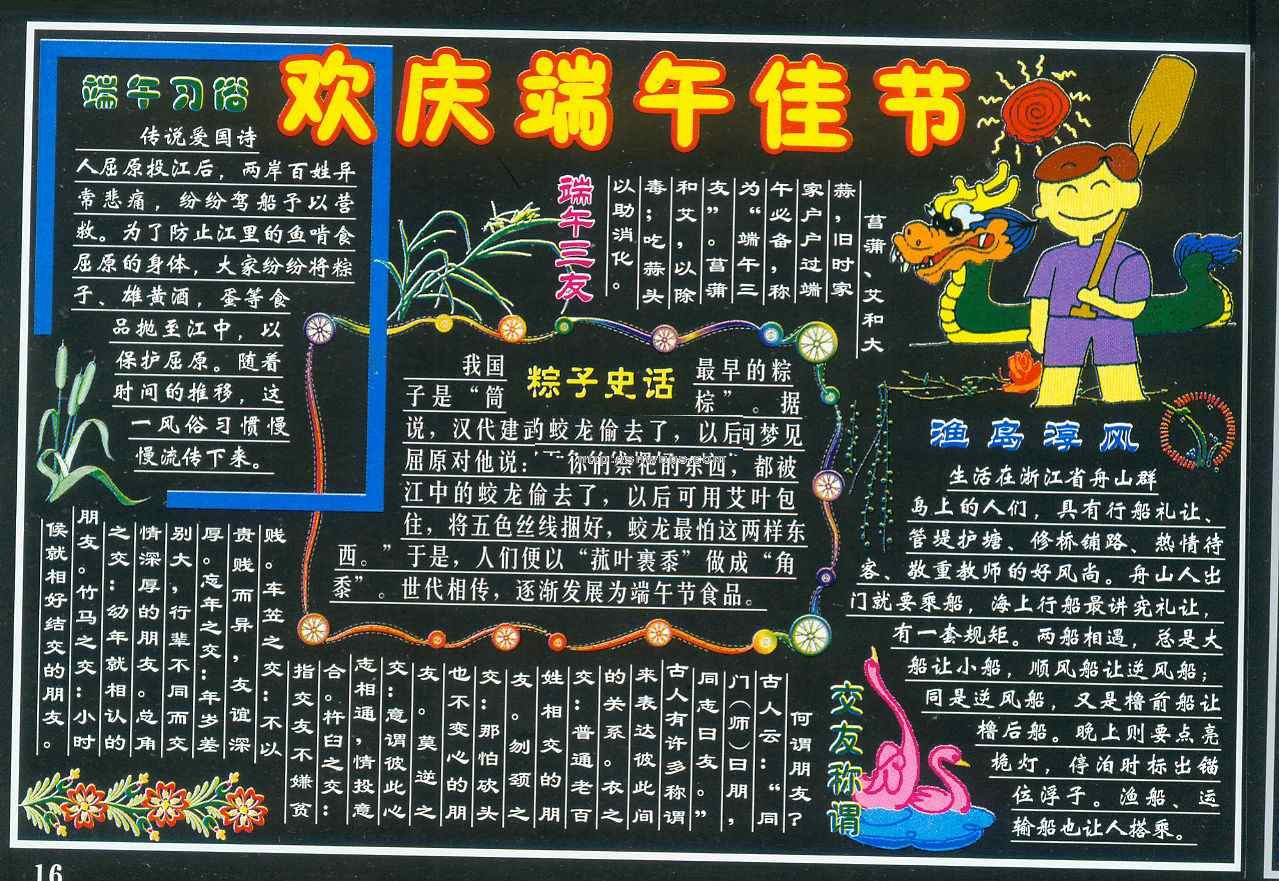 欢庆端午佳节
端午习俗
传说爱国诗
人屈原投江后，两岸百姓异
常悲痛，纷纷驾船予以营
救。为了防止江里的鱼啃食
屈原的身体，大家纷纷将粽
子、雄黄酒，蛋等食
品抛至江中，以
保护屈原。随着
时间的推移，这
一风俗习惯慢
慢流传下来。
端午三友
菖蒲、艾和大
蒜，旧时家
家户户过端
午必备，称
为“端午三
友”。菖蒲
和艾，以除
毒；吃蒜头
以助消化。
粽子史话
我国 最早的粽
子是“筒 棕”。据
说，汉代建武蛟龙偷去了，以后可梦见
屈原对他说： 你的 的东西，都被
江中的蛟龙偷去了，以后可用艾叶包
住，将五色丝线捆好，蛟龙最怕这两样东
西。”于是，人们便以“菰叶裹黍”做成“角
黍”。世代相传，逐渐发展为端午节食品。
渔岛淳风
生活在浙江省舟山群
岛上的人们，具有行船礼让、
管堤护塘、修桥铺路、热情待
客、敬重教师的好风尚。舟山人出
门就要乘船，海上行船最讲究礼让，
有一套规矩。两船相遇，总是大
船让小船，顺风船让逆风船；
同是逆风船，又是橹前船让
橹后船。晚上则要点亮
桅灯，停泊时标出锚
位浮子。渔船、运
输船也让人搭乘。
交友称谓
何谓朋友？
古人云：“同
门（师）曰朋，
同志曰友。”
古人有许多称谓
来表达彼此间
的关系。衣之
交：普通老百
姓相交的朋
友。刎颈之
交：那怕砍头
也不变心的朋
友。莫逆之
交：意谓彼此心
志相通，情投意
合。杵臼之交：
指交友不嫌贫
贱。车笠之交：不以
贵贱而异，友谊深
厚。忘年之交：年岁差
别大，行辈不同而交
情深厚的朋友。总角
之交：幼年就相认的
朋友。竹马之交：小时
候就相好结交的朋友。
16